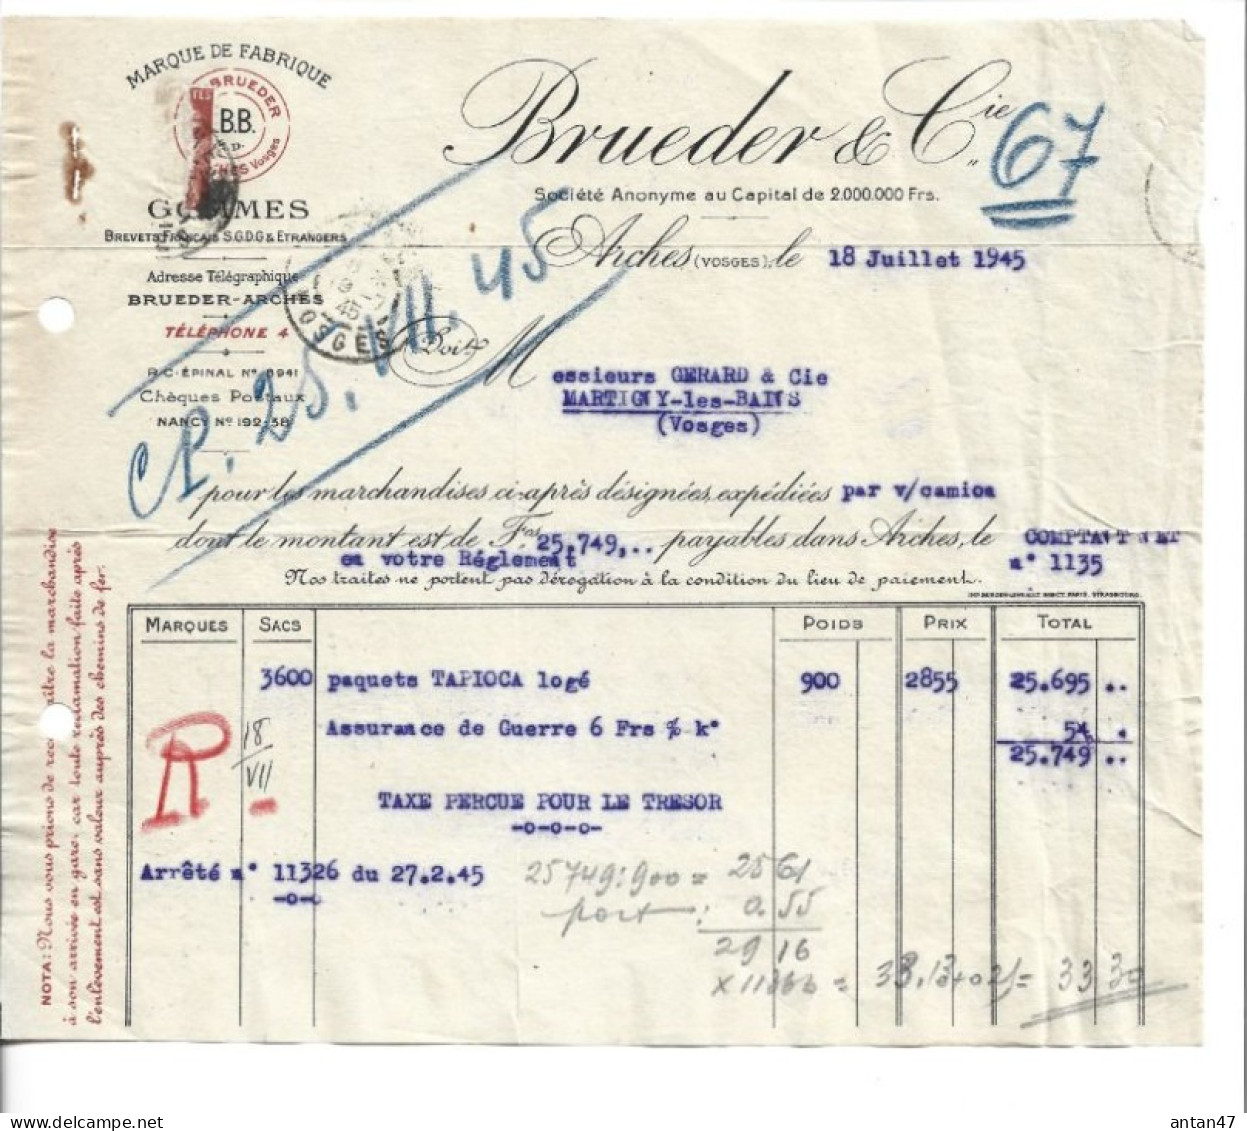 MARQUE DE FABRIQUE
BRUEDER
B.B.
Vosges
GOMMES
BREVETS FRANÇAIS S.G.D.G & ETRANGERS
Adresse Télégraphique
BRUEDER-ARCHES
TÉLÉPHONE 4
R.C. ÉPINAL No 8941
Chèques Postaux
NANCY No 192-38
Brueder & Cie
67
Société Anonyme au Capital de 2.000.000 Frs.
Arches (VOSGES), le 18 Juillet 1945
VOSGES
CP. 25. VII. 45
Doit
M essieurs GERARD & Cie
MARTIGNY-les-BAINS
(Vosges)
pour les marchandises ci-après désignées, expédiées par v/camion
dont le montant est de Frs 25.749,.. payables dans Arches, le COMPTANT NET
en votre Réglement n° 1135
Nos traites ne portent pas dérogation à la condition du lieu de paiement.
MARQUES SACS POIDS PRIX TOTAL
3600 paquets TAPIOCA logé 900 2855 25.695 ..
Assurance de Guerre 6 Frs % k° 54. .
25.749 ..
R
18
VII
TAXE PERCUE POUR LE TRESOR
-o-o-o-
Arrêté n° 11326 du 27.2.45
-o-o
25749:900 = 2861
port : 0.55
2916
= 33.30
NOTA: Nous vous prions de reconnaître la marchandise
à son arrivée en gare, car toute réclamation faite après
l'enlèvement est sans valeur auprès des chemins de fer.
antan47